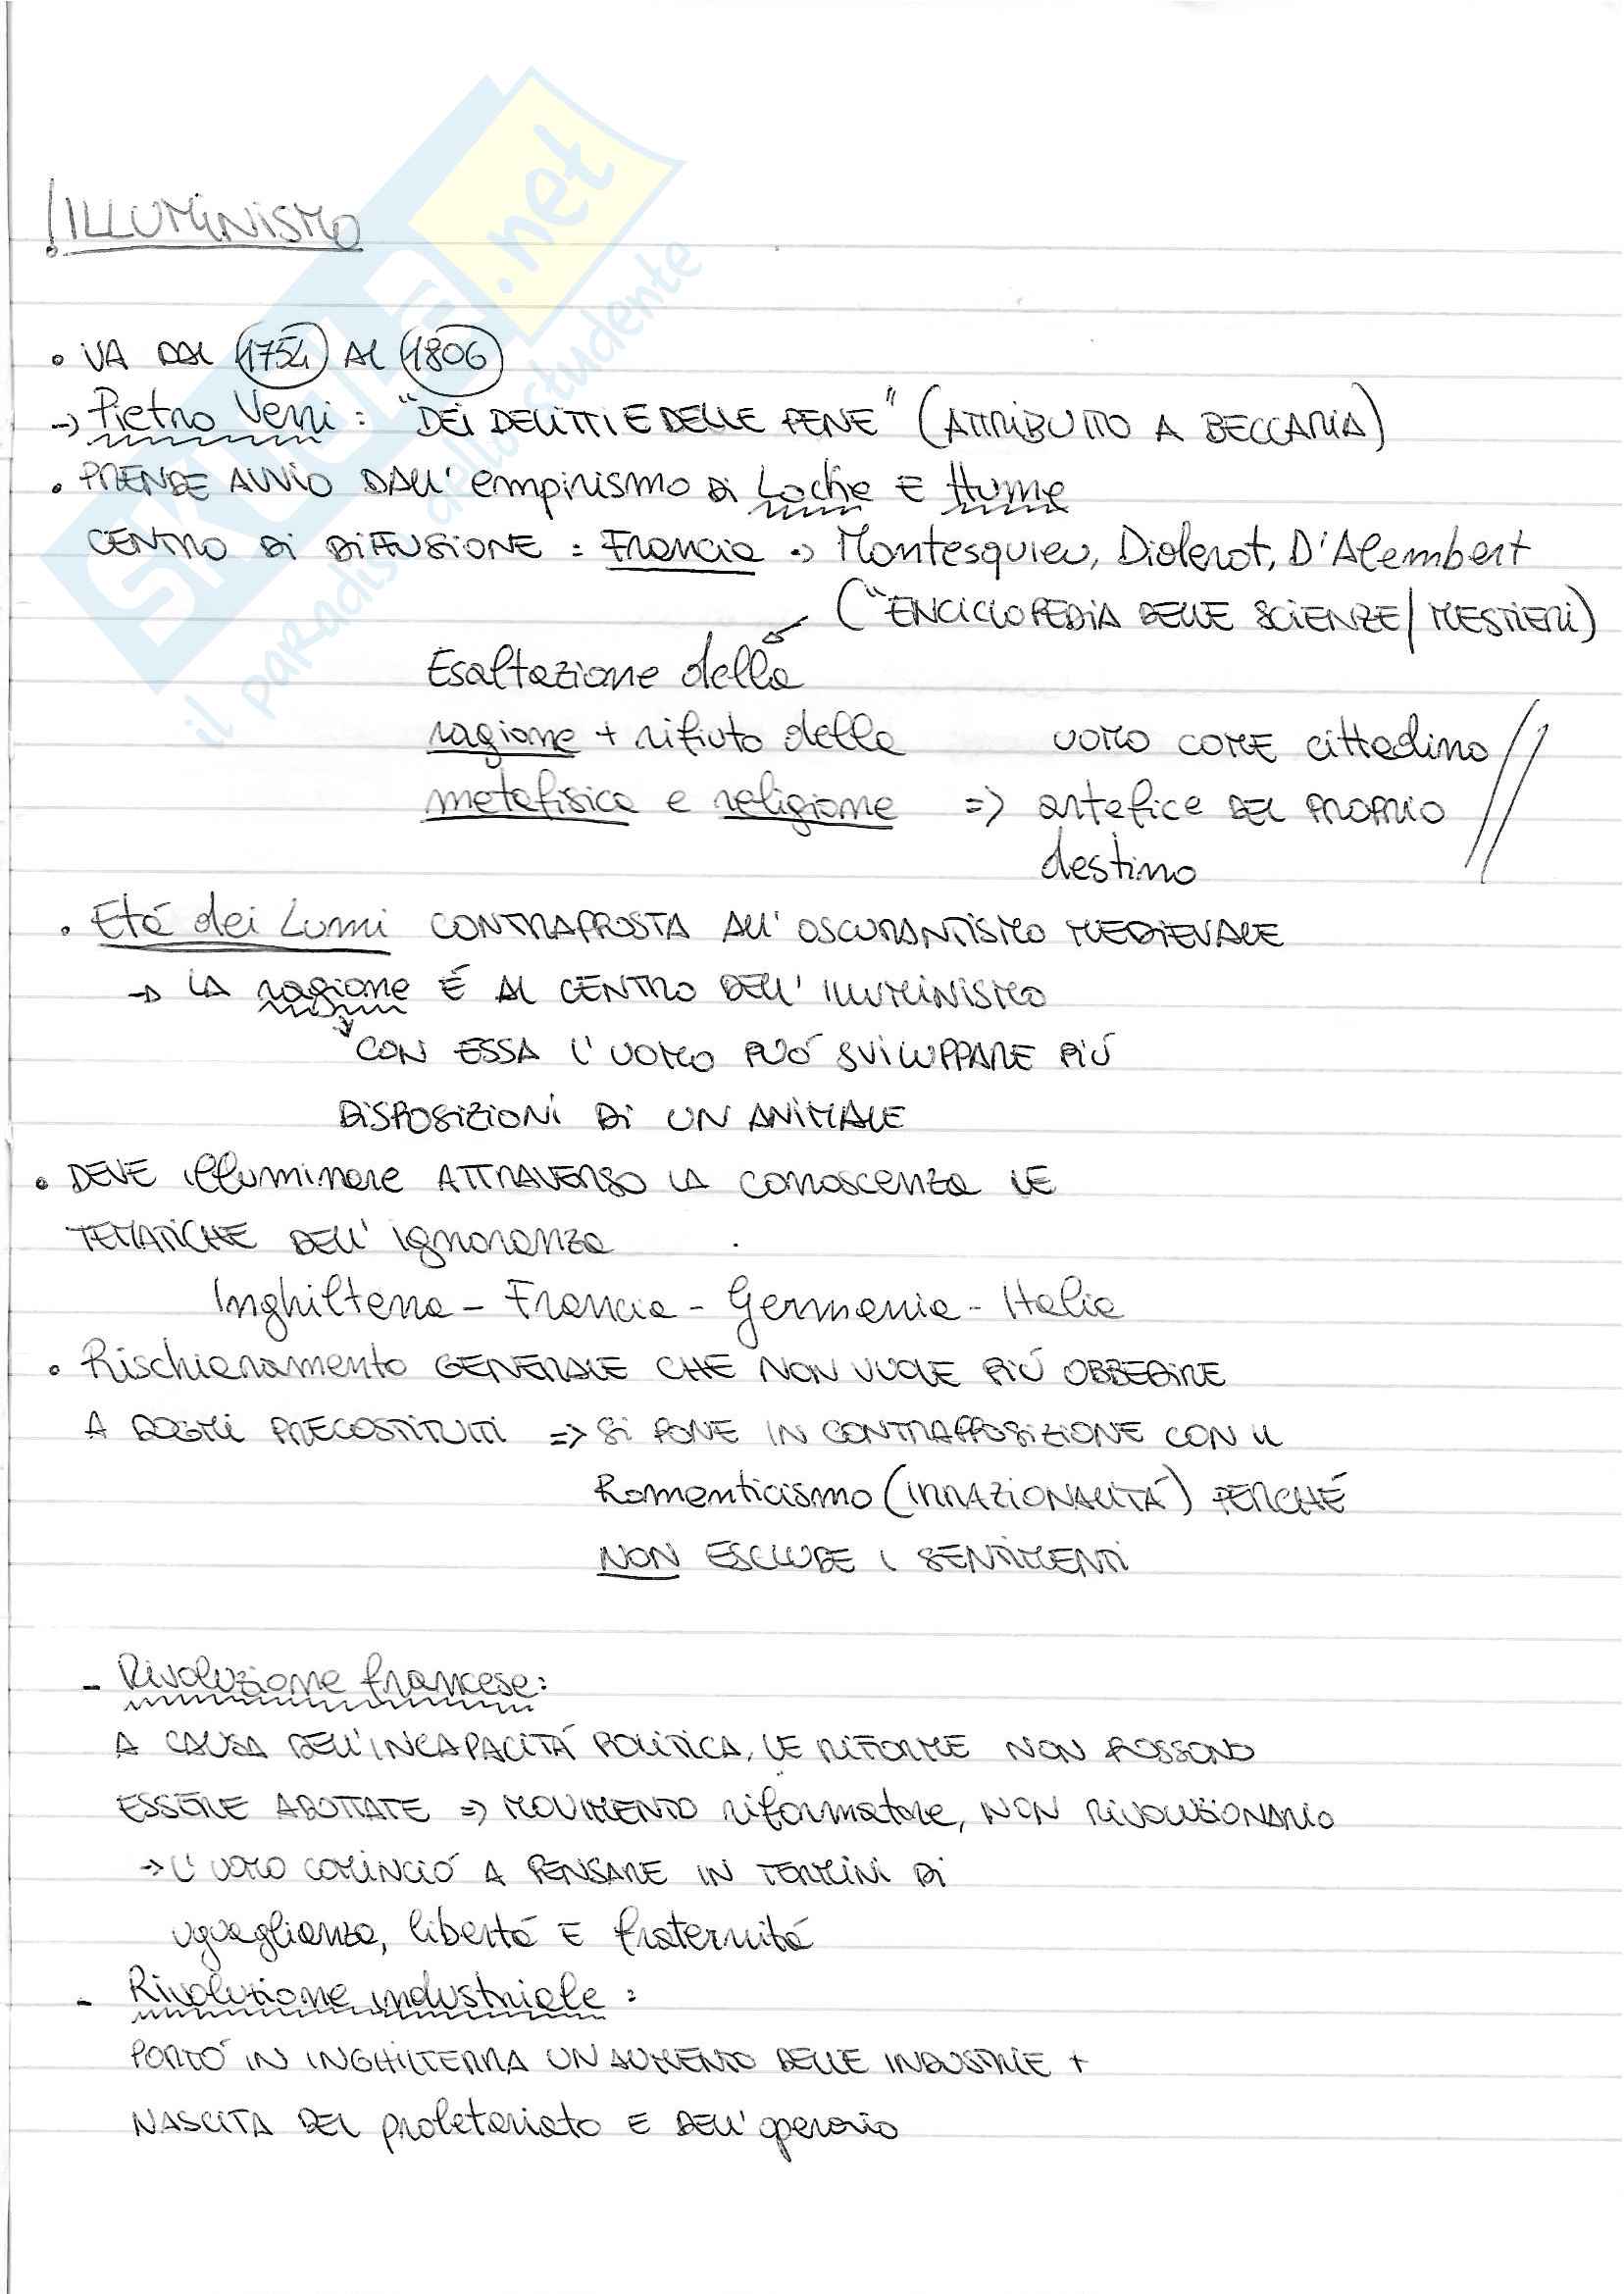 ILLUMINISMO
• VA DAL 1754 AL 1806
→ Pietro Verri: "DEI DELITTI E DELLE PENE" (ATTRIBUITO A BECCARIA)
• PRENDE AVVIO DALL' empirismo DI Locke E Hume
CENTRO DI DIFFUSIONE = Francia → Montesquieu, Diderot, D'Alembert
("ENCICLOPEDIA DELLE SCIENZE/MESTIERI)
Esaltazione della
ragione + rifiuto della uomo come cittadino
metafisica e religione => artefice DEL PROPRIO
destino
• Etá dei Lumi CONTRAPPOSTA ALL'OSCURANTISMO MEDIEVALE
→ LA ragione É AL CENTRO DELL'ILLUMINISMO
CON ESSA L'UOMO PUÓ SVILUPPARE PIÚ
DISPOSIZIONI DI UN ANIMALE
• DEVE illuminare ATTRAVERSO LA conoscenza LE
TEMATICHE DELL'ignoranza
Inghilterra - Francia - Germania - Italia
• Rischiaramento GENERALE CHE NON VUOLE PIÚ OBBEDIRE
A DOGMI PRECOSTITUITI => SI PONE IN CONTRAPPOSIZIONE CON IL
Romanticismo (IRRAZIONALITÁ) PERCHÉ
NON ESCLUDE I SENTIMENTI
- Rivoluzione francese:
A CAUSA DELL'INCAPACITÁ POLITICA, LE RIFORME NON POSSONO
ESSERE ADOTTATE => MOVIMENTO riformatore, NON RIVOLUZIONARIO
→ L'UOMO COMINCIÓ A PENSARE IN TERMINI DI
uguaglianza, libertá E fraternitá
- Rivoluzione industriale:
PORTÓ IN INGHILTERRA UN AUMENTO DELLE INDUSTRIE +
NASCITA DEL proletariato E DELL'operaio
SKUOLA.net
il paradiso dello studente